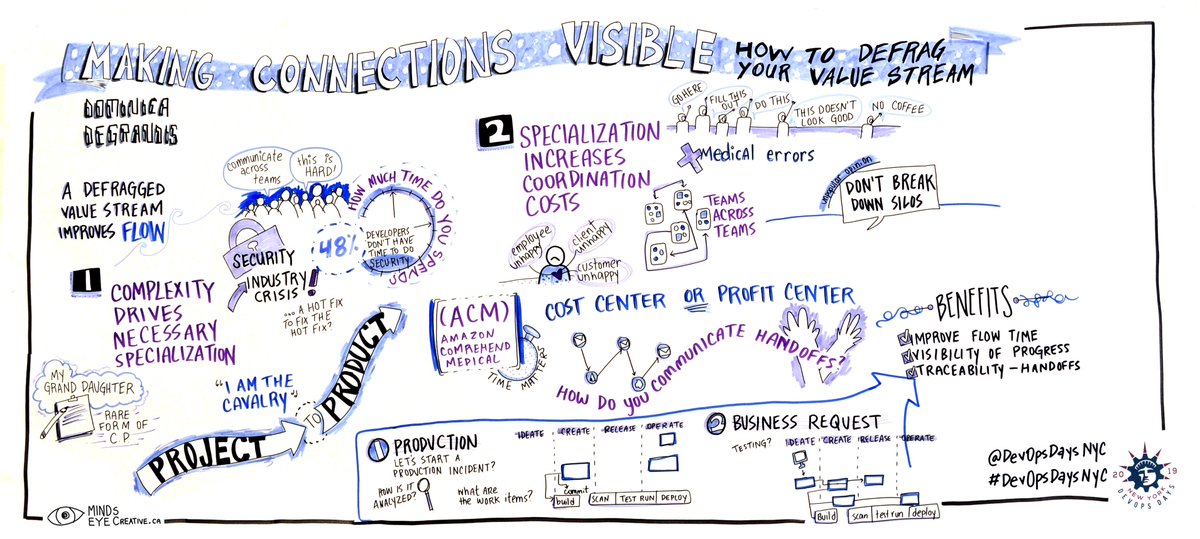 MAKING CONNECTIONS VISIBLE
HOW TO DEFRAG
YOUR VALUE STREAM
DOMINICA
DEGRANDIS
A DEFRAGGED
VALUE STREAM
IMPROVES FLOW
communicate
across
teams
this is
HARD!
HOW MUCH TIME DO YOU SPEND?
48%
DEVELOPERS
DON'T HAVE
TIME TO DO
SECURITY
SECURITY
INDUSTRY
CRISIS!
...A HOT FIX
TO FIX THE
HOT FIX?
1
COMPLEXITY
DRIVES
NECESSARY
SPECIALIZATION
MY
GRAND DAUGHTER
RARE
FORM OF
C.P
"I AM THE
CAVALRY"
PROJECT
TO
PRODUCT
2
SPECIALIZATION
INCREASES
COORDINATION
COSTS
GO HERE
FILL THIS
OUT
DO THIS
THIS DOESN'T
LOOK GOOD
NO COFFEE
Medical errors
TEAMS
ACROSS
TEAMS
unpopular opinion
DON'T BREAK
DOWN SILOS
employee
unhappy
client
unhappy
customer
unhappy
(ACM)
AMAZON
COMPREHEND
MEDICAL
TIME MATTERS
COST CENTER OR PROFIT CENTER
HOW DO YOU COMMUNICATE HANDOFFS?
BENEFITS
IMPROVE FLOW TIME
VISIBILITY OF PROGRESS
TRACEABILITY-HANDOFFS
1 PRODUCTION
LET'S START A
PRODUCTION INCIDENT?
HOW IS IT
ANALYZED?
WHAT ARE
THE WORK ITEMS?
IDEATE CREATE RELEASE OPERATE
commit
build SCAN TEST RUN DEPLOY
2 BUSINESS REQUEST
TESTING?
IDEATE CREATE RELEASE OPERATE
Build scan test run deploy
@DevOpsDaysNYC
#DevOpsDaysNYC
2019
NEW YORK
DEVOPS DAYS
MINDS
EYE CREATIVE.CA